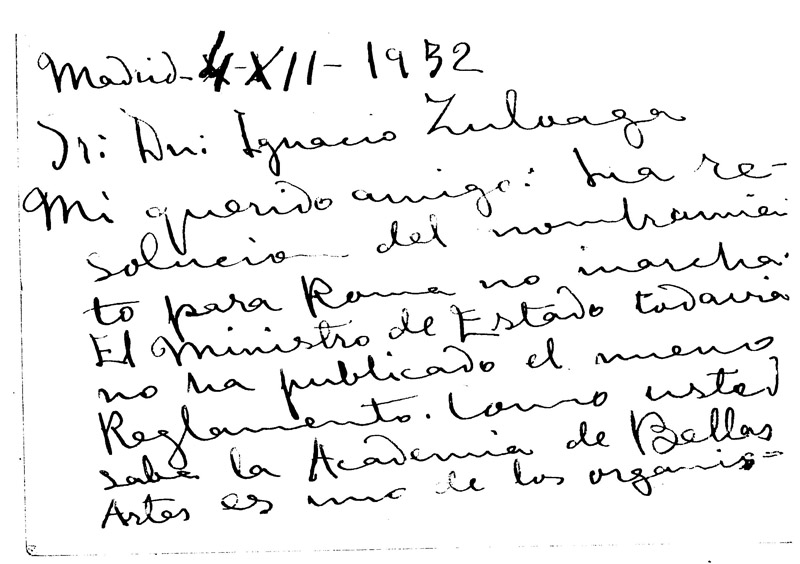 Madrid-4-XII-1932
Sr: Dn: Ignacio Zuloaga
Mi querido amigo: La re-
solucion del nombramien
to para Roma no marcha.
El Ministro de Estado todavia
no ha publicado el nuevo
Reglamento. Como usted
sabe la Academia de Bellas
Artes es uno de los organis=